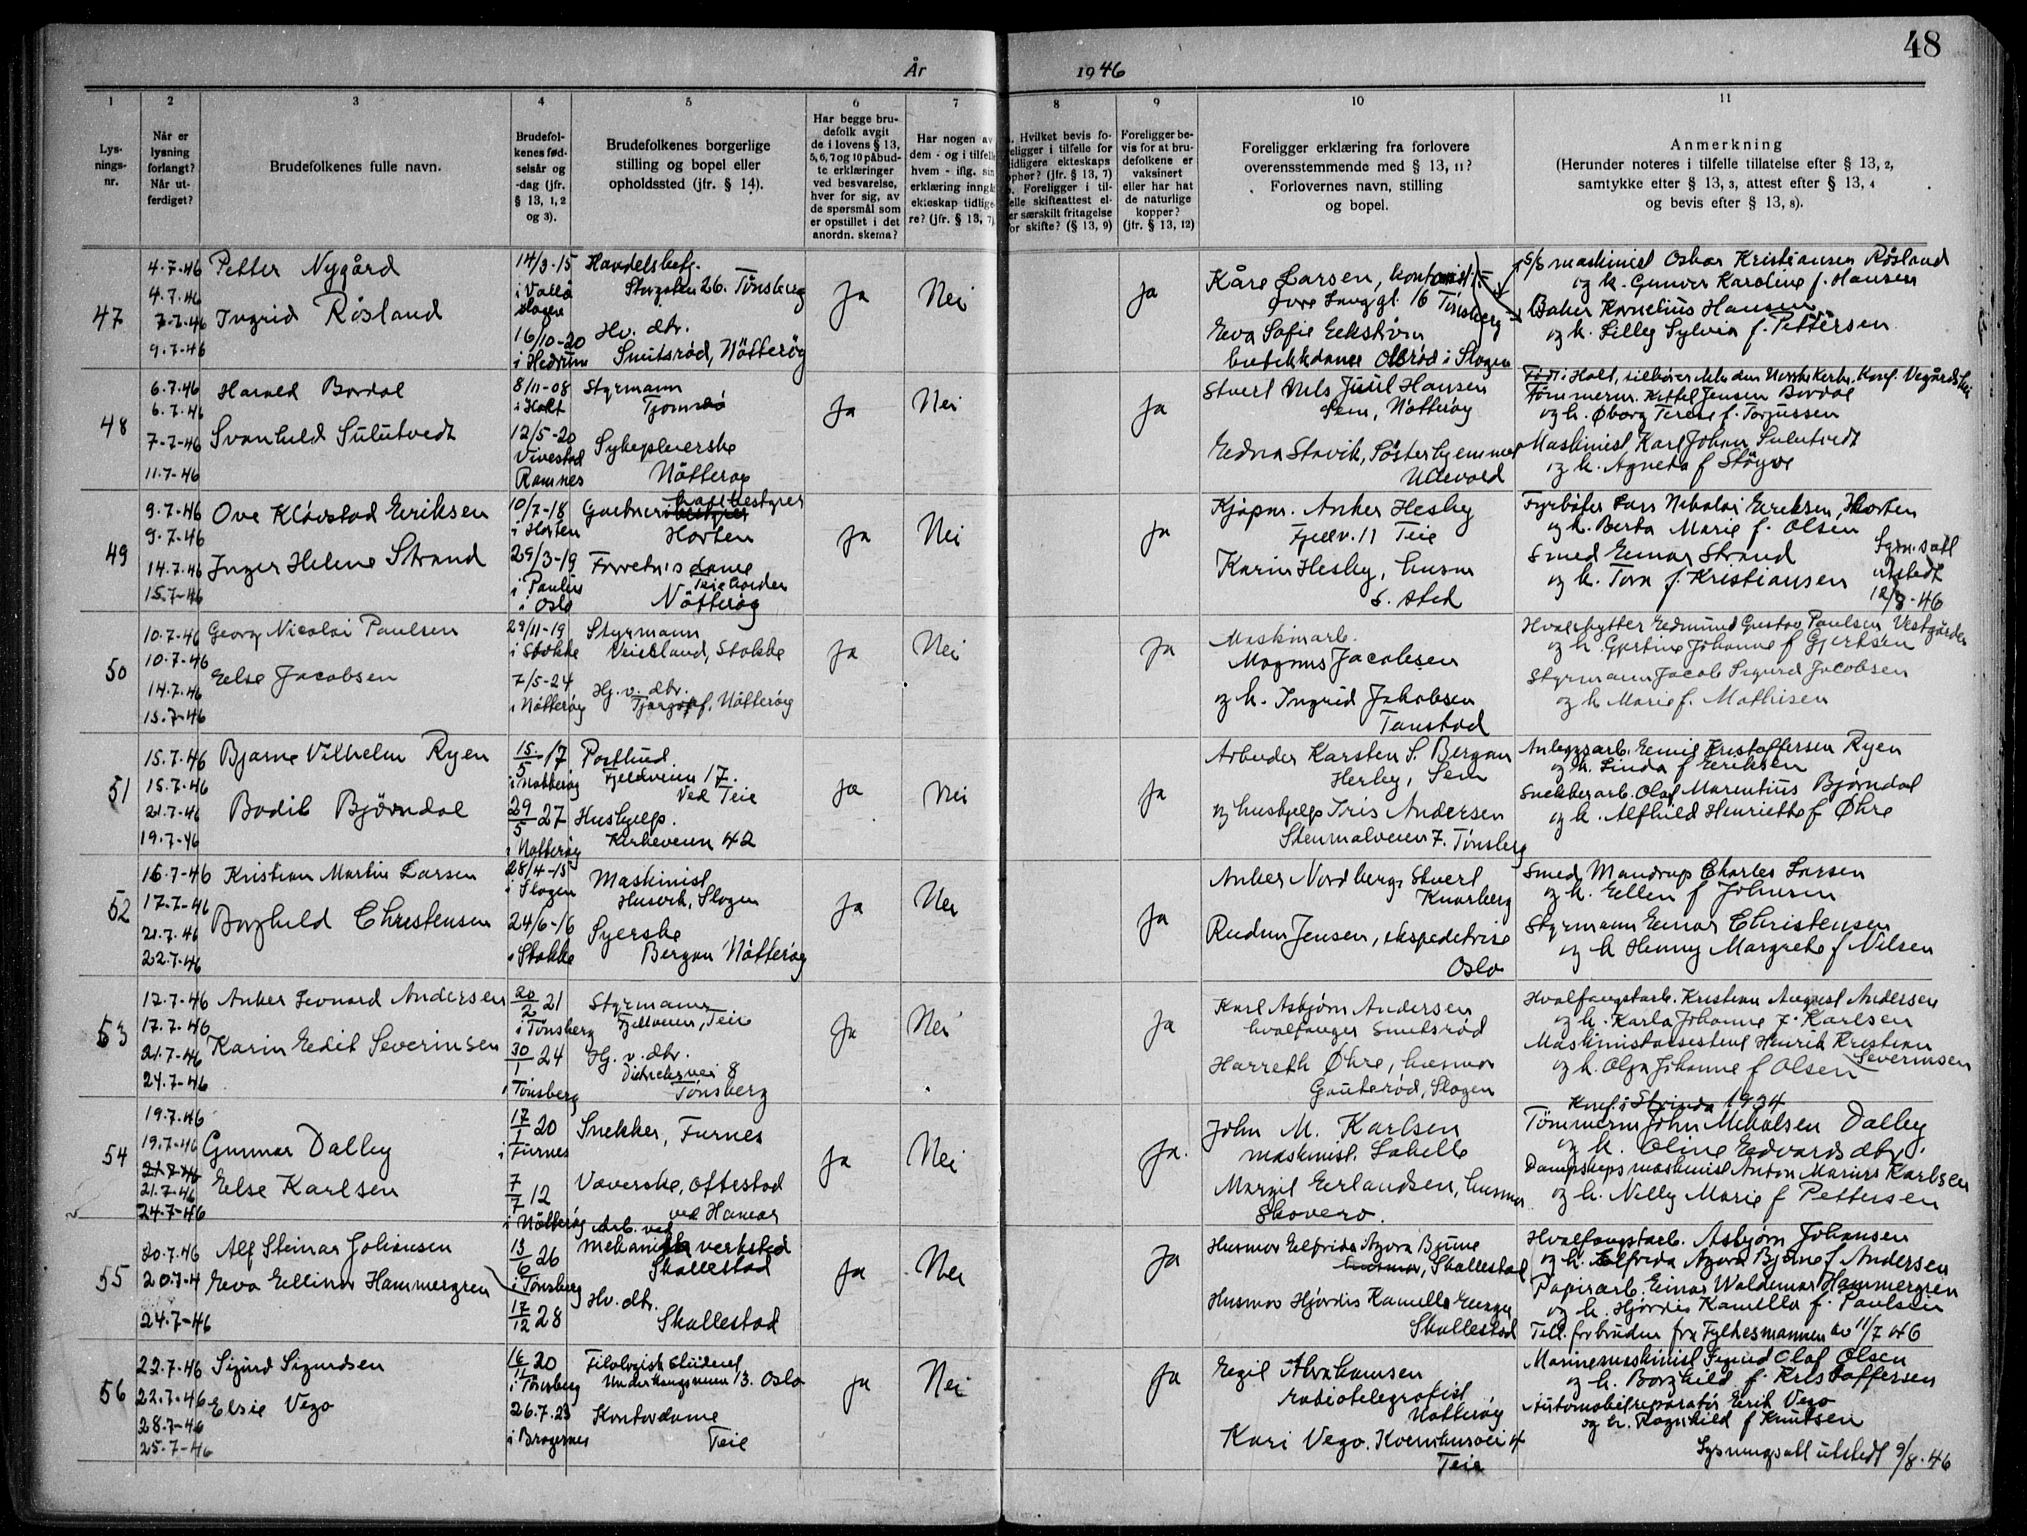 48
År 1946
1
2
3
4
5
6
7
8
9
10
11
Lys-
nings-
nr.
Når er
lysning
forlangt?
Når ut-
ferdiget?
Brudefolkenes fulle navn.
Brudefol-
kenes fød-
selsår og
-dag (jfr.
§ 13, 1, 2
og 3).
Brudefolkenes borgerlige
stilling og bopel eller
opholdssted (jfr. § 14).
Har begge bru-
defolk avgit
de i lovens § 13,
5, 6, 7 og 10 påbud-
te erklæringer
ved besvarelse,
hver for sig, av
de spørsmål som
er opstillet i det
anordn. skema?
Har nogen av
dem - og i tilfelle
hvem - iflg. sin
erklæring inngå
ekteskap tidlige-
re? (jfr. § 13, 7)
Hvilket bevis fo-
religger i tilfelle for
tidligere ekteskaps
ophør? (jfr. § 13, 7)
Foreligger i til-
felle skifteattest el-
er særskilt fritagelse
for skifte? (§ 13, 9)
Foreligger be-
vis for at bru-
defolkene er
vaksinert
eller har hat
de naturlige
kopper?
(jfr. § 13, 12)
Foreligger erklæring fra forlovere
overensstemmende med § 13, 11?
Forlovernes navn, stilling
og bopel.
Anmerkning
(Herunder noteres i tilfelle tillatelse efter § 13, 2,
samtykke efter § 13, 3, attest efter § 13, 4
og bevis efter § 13, 8).
47
4.7.46
4.7.46
7.7.46
9.7.46
Petter Nygård
Ingrid Røsland
14/3-15
i Vallø
Slagen
16/10-20
i Hedrum
Handelsbetj.
Storgaten 26. Tønsberg
Hv. dtr.
Smitsrød, Nøtterøy
Ja
Nei
Ja
Kåre Larsen, kontorist
øvre Langgt. 16 Tønsberg
Eva Sofie Eekstrøm
butikkdame Olsrød i Slagen
S/s maskinist Oskar Kristiansen Røsland
og h. Gunvor Karoline f. Hansen
Baker Kornelius Hansen
og h. Lilly Sylvia f. Pettersen
48
6.7.46
6.7.46
7-7-46
11.7-46
Harald Bordal
Svanhild Sulutvedt
8/11-08
i Holt
12/5-20
Vivestad
Ramnes
Styrmann
Tjømø
Sykepleierske
Nøtterøy
Ja
Nei
Ja
Stuert Nils Juul Hansen
Sem, Nøtterøy
Edna Stavik, Søsterhjemmet
Ullevold
Født i Holt, tilhører ikke den Norske Kirke. Konf. Vegårdshei
Tømmerm. Kittel Jensen Bordal
og h. Øborg Terese f. Torjussen
Maskinist Karl Johan Sulutvedt
og h. Agneta f Støyve
49
9.7-46
9.7-46
14.7.46
15.7-46
Ove Kløvstad Eriksen
Inger Helene Strand
10/7-18
i Horten
29/3-19
i Paulus
i Oslo
Gartneri
Horten
Forretnis dame
Nøtterøy
Ja
Nei
Ja
Kjøpm. Anker Hesby
Fjellv. 11 Teie
Karin Hesby, husm
s. sted
Fyrbøter Lars Nikolai Eriksen, Horten
og h. Berta Marie f. Olsen
Smed Einar Strand
og h. Tora f. Kristiansen
Lysn.s att
utstedt
12/8-46
50
10.7-46
10.7-46
14.7.46
15.7-46
Georg Nicolai Paulsen
Else Jacobsen
29/11-19
i Stokke
7/5-24
i Nøtterøy
Styrmann
Stokke
Hj. v. dtr.
Nøtterøy
Ja
Nei
Ja
Maskinarb.
Magnus Jacobsen
og h. Ingrid Jakobsen
Tanstad
Hvalskytter Edmund Gustav Paulsen Vestgården
og h. Gjertine Johanne f Gjertsen
Styrmann Jacob Sigurd Jacobsen
og h Marie f. Mathisen
51
15.7.46
15.7-46
21.7.46
19.7-46
Bjarne Vilhelm Ryen
Bodil Bjørndal
15/5 17
i Nøtterøy
29/5 27
i Nøtterøy
Postbud.
Fjeldveien 17.
Ved Teie
Hushjelp.
Kirkeveien 42
Ja
Nei
Ja
Arbeider Karsten S. Bergan
Herby, Sem
og hushjelp Iris Andersen
Stenmalveien 7. Tønsberg
Anleggsarb. Emil Kristoffersen Ryen
og h. Linda f Eriksen
Snekkerarb. Olaf Marentius Bjørndal
og h. Alfhild Henriette f Øhre
52
16.7-46
17.7-46
21.7.46
22.7-46
Kristian Martin Larsen
Borghild Christensen
28/4-15
i Slagen
24/6-16
i Stokke
Maskinist
Husvik, Slagen
Syerske
Bergan Nøtterøy
Ja
Nei
Ja
Anker Nordberg, Stuert
Knarberg
Rudun Jensen, ekspeditrise
Oslo
Smed Mandrup Charles Larsen
og h. Ellen f Johnsen
Styrmann Einar Christensen
og h Henny Margrete f Nilsen
53
17.7-46
17.7-46
21.7-46
24.7-46
Anker Leonard Andersen
Karin Edit Severinsen
20/2 21
i Tønsberg
30/1 24
i Tønsberg
Styrmann
Fjellveien, Teie
Hj. v. dtr.
Tønsberg
Ja
Nei
Ja
Karl Asbjørn Andersen
hvalfanger Smitsrød
Harreth Øhre, husmor
Gauterød, Slagen
Hvalfangstarb. Kristian August Andersen
og h. Karla Johanne f. Karlsen
Maskinistassistent Henrik Kristian
Severinsen
og h. Olga Johanne f Olsen
54
19.7.46
19.7-46
21.7.46
21.7-46
24.7-46
Gunnar Dalby
Else Karlsen
17/1 20
i Furnes
7/7 12
i Nøtterøy
Snekker, Furnes
Væverske, Oftestad
ved Hamar
Ja
Nei
Ja.
John M. Karlsen
maskinist. Labella
Margit Erlandsen, husmor
Skovero.
Konf. i Strinda 1934
Tømmerm John Mikalsen Dalby
og h. Oline Edvardsdtr.
Dampskips maskinist Anton Marius Karlsen
og h. Nelly Marie f Pettersen
55
20.7.46
20.7-4
24.7-46
Alf Steinar Johansen
Eva Ellinor Hammergren
13/6 26
i Tønsberg
17/12 28
Arb. ved
mekanisk verksted
Skallestad
Hv. dtr.
Skallestad
Ja
Nei
Ja
Husmor Elfrida Agora Bjune
husmor, Skallestad
Husmor Hjørdis Kamella
Skallestad
Hvalfangstarb. Asbjørn Johansen
og h. Elfrida Agora Bjune f Andersen
Papirarb. Einar Waldemar Hammergren
og h. Hjørdis Kamella f. Paulsen
Till. for bruden fra Fylkesmannen av 11/7 46
56
22.7-46
22.7-46
28.7-46
25.7-46
Sigurd Sigurdsen
Elsie Vego
16/11 20
i Tønsberg
26.7.23
i Bragernes
Filologisk student
13. Oslo
Kontordame
Teie
Ja
Nei
Ja
Egil Abrahamsen
radiotelegrafist
Nøtterøy
Kari Vego.
Teie
Marinemaskinist Sigurd Olaf Olsen
og h. Borghild f. Kristoffersen
Automobilreparatør Erik Vego
og h. Ragnhild f Knutsen
Lysningsatt utstedt 9/8.46